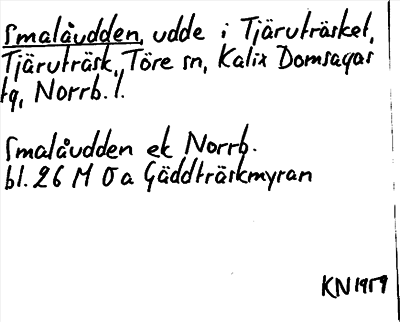 Smalåudden, udde i Tjäruträsket,
Tjäruträsk, Töre sn, Kalix Domsagas
tg, Norrb. l.
Smalåudden ek Norrb.
bl. 26 M 0 a Gäddträskmyran
KN 1959